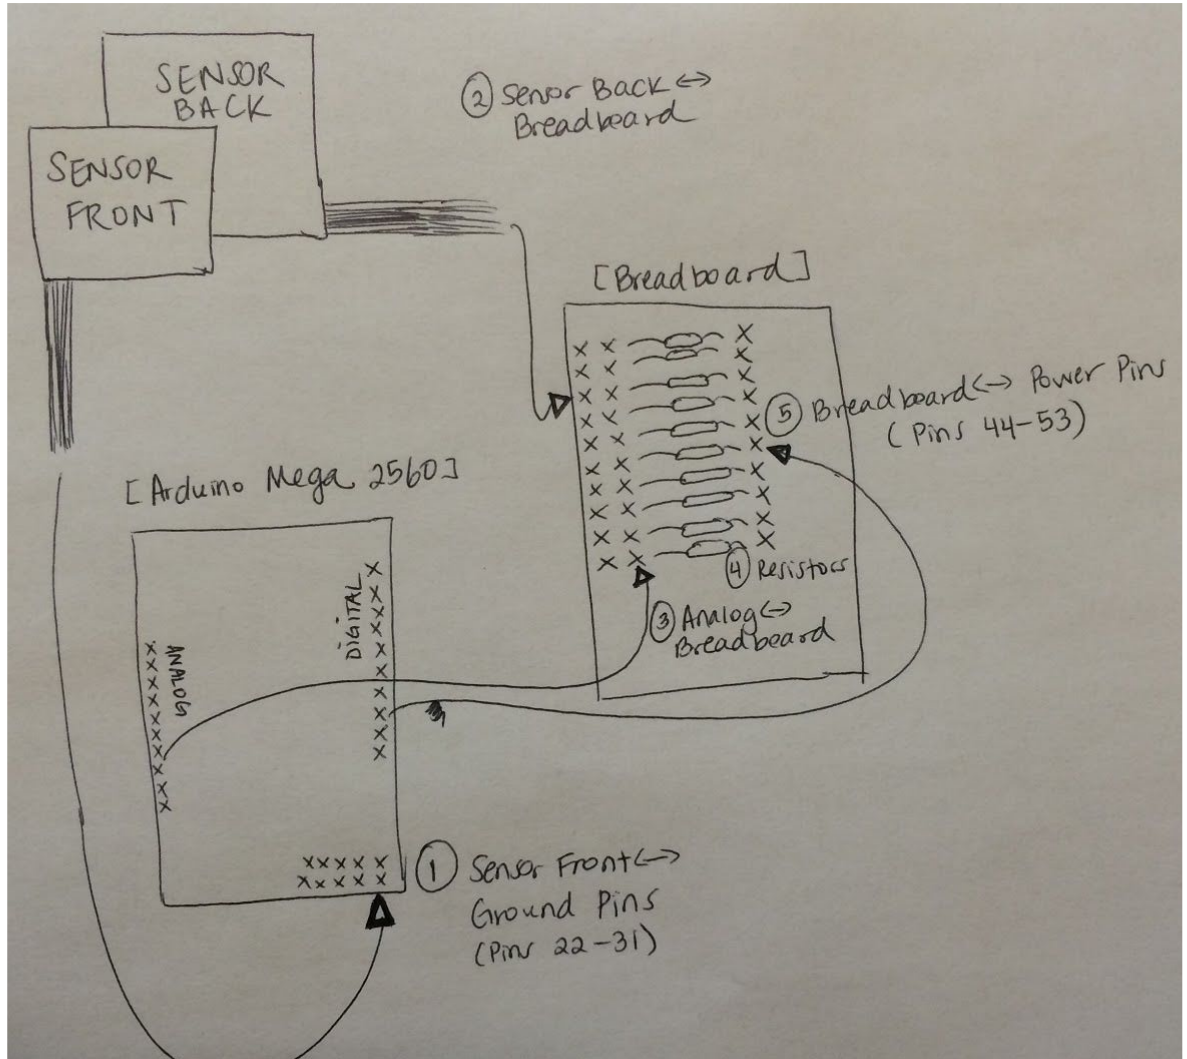 SENSOR
BACK
SENSOR
FRONT
② Sensor Back <->
Breadboard
[Breadboard]
⑤ Breadboard <-> Power Pins
(Pins 44-53)
④ Resistors
③ Analog <->
Breadboard
[Arduino Mega 2560]
DIGITAL
ANALOG
① Sensor Front <->
Ground Pins
(Pins 22-31)